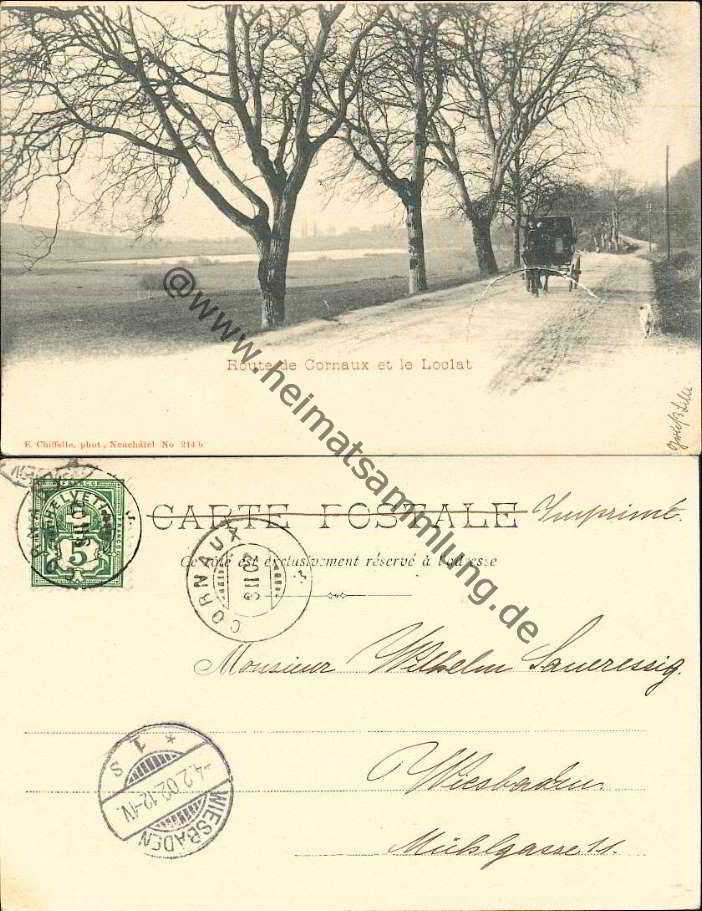 Route de Cornaux et le Loclat
E. Chiffelle, phot., Neuchâtel No 214 b
@www.heimatsammlung.de
HELVETIA
FRANCO
5
CARTE POSTALE Imprimé.
Ce côté est exclusivement réservé à l'adresse
CORNAUX
3 II 02
Monsieur Wilhelm Saueressig.
WIESBADEN
-4.2.02.12-1V.
* 1 S
Wiesbaden.
Mühlgasse 11.